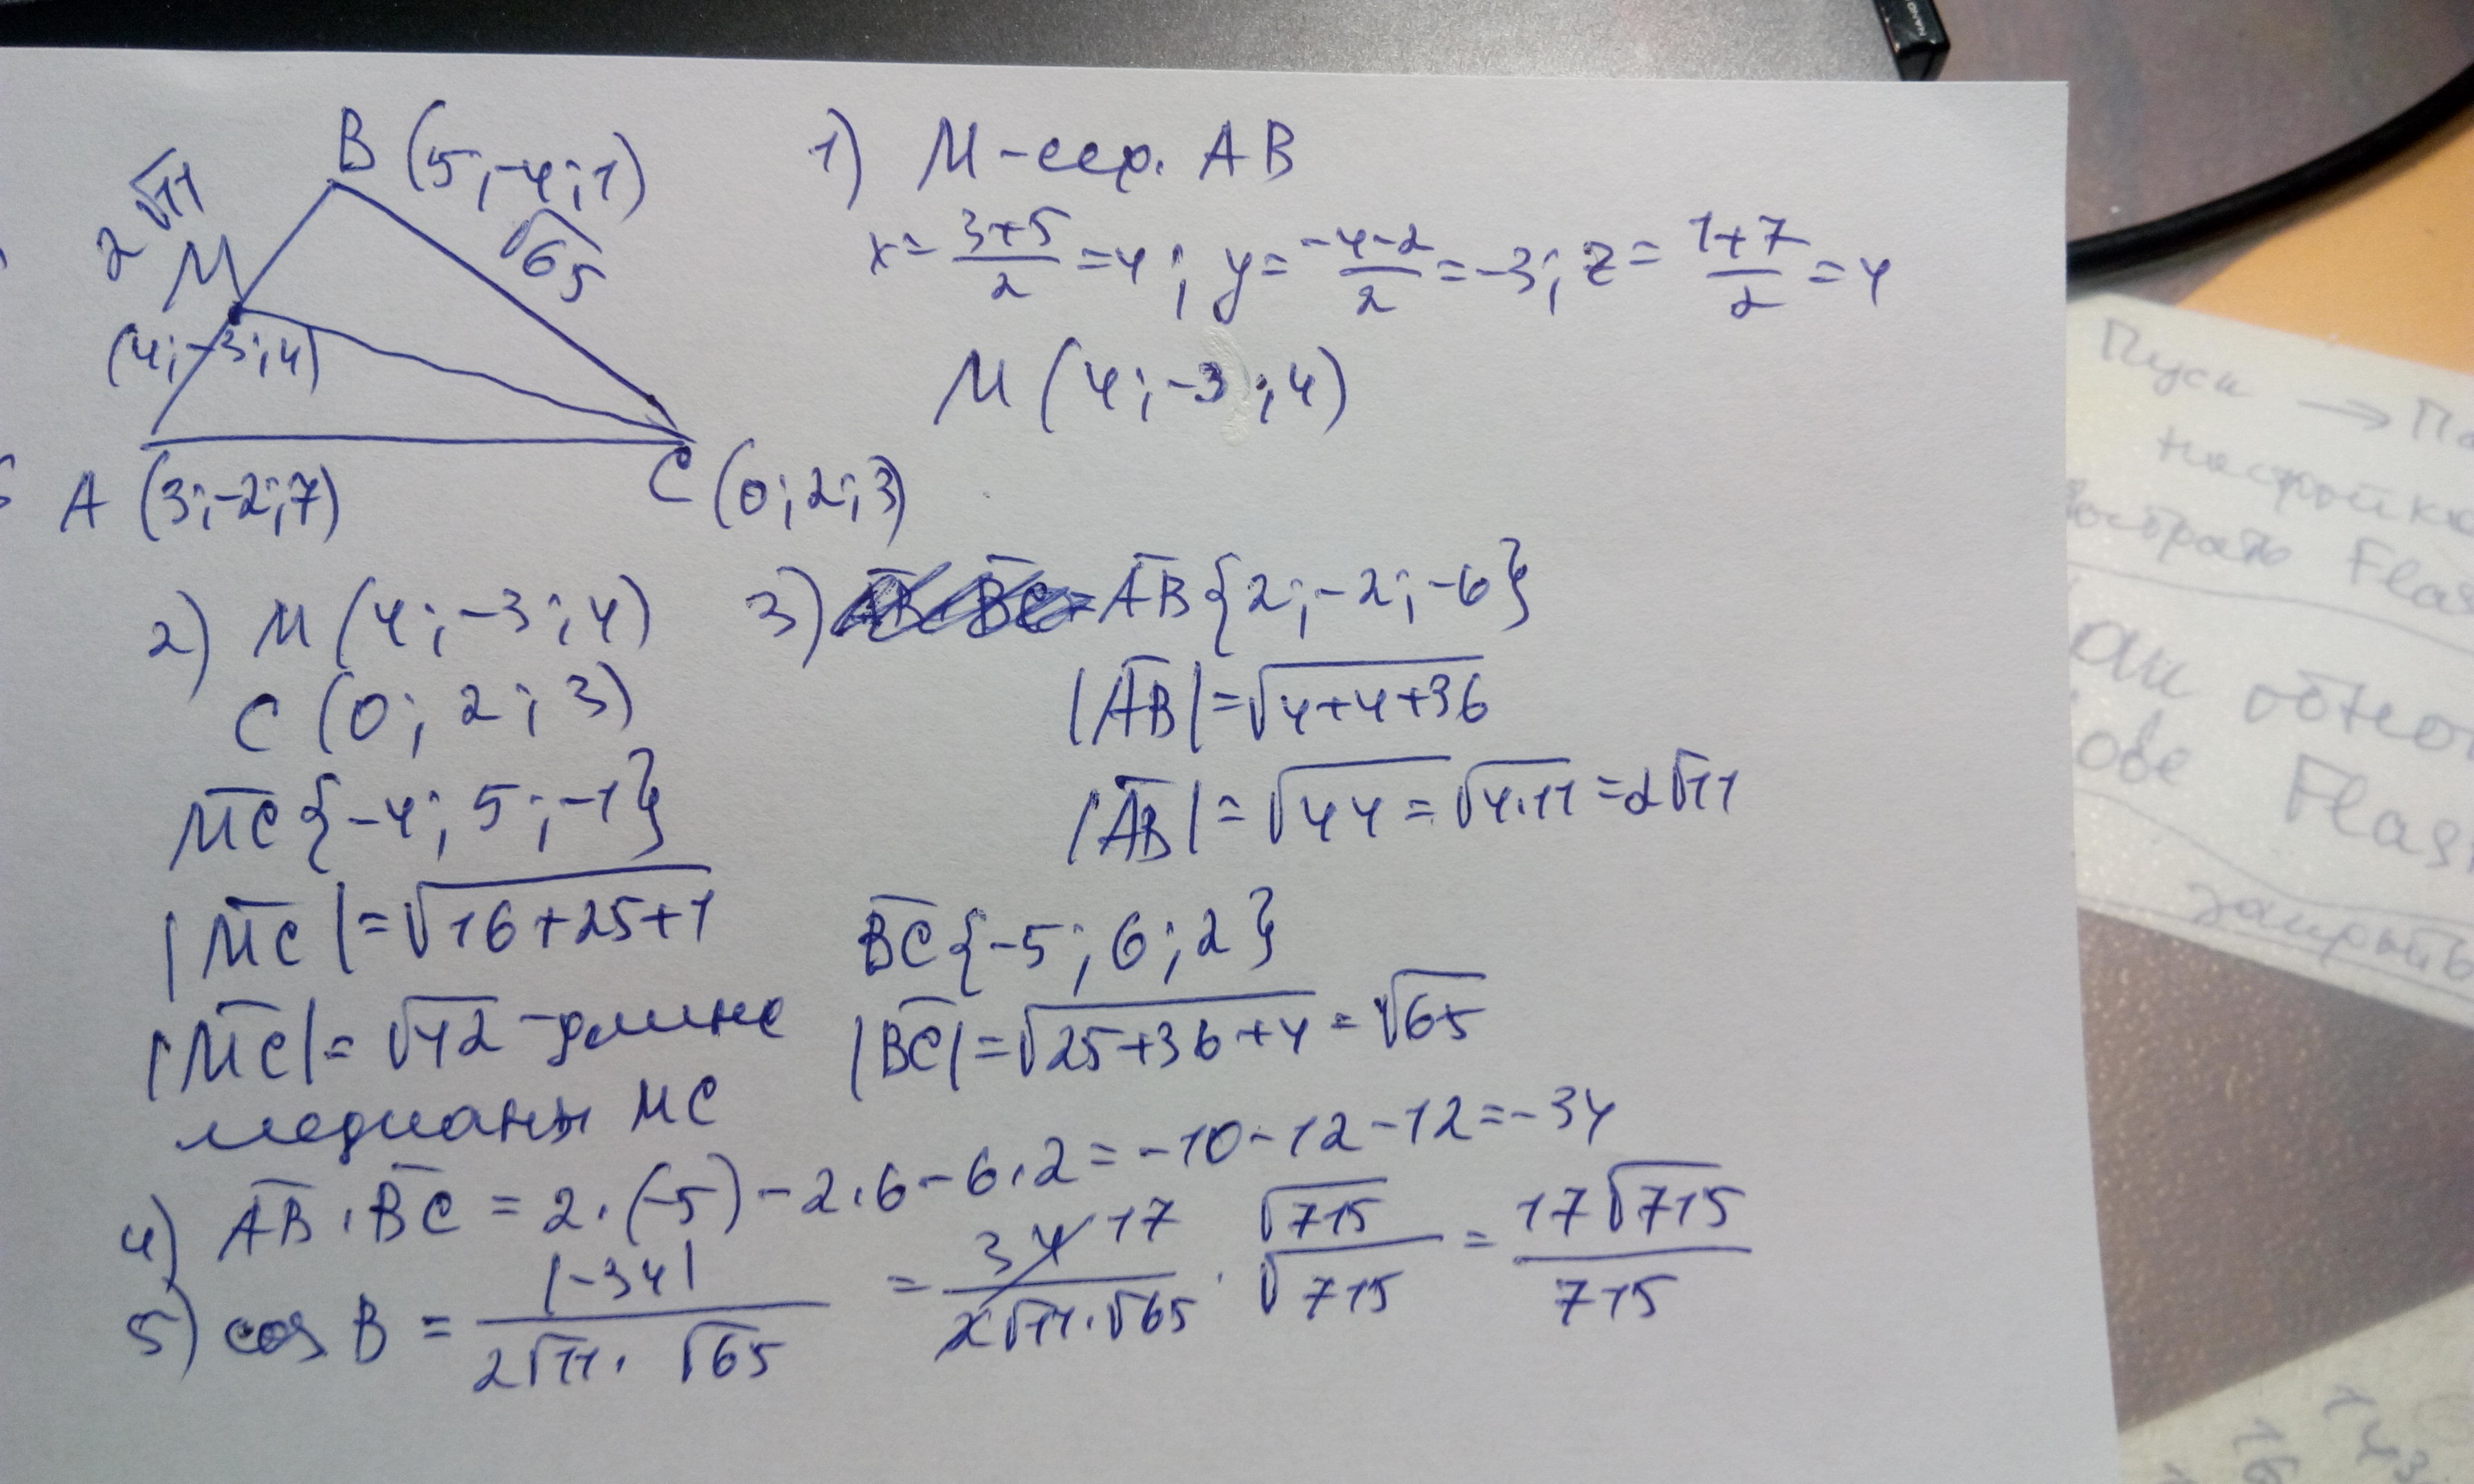 B (5;-4;1)
2√11
√65
M
(4;-3;4)
A (3;-2;7)
C (0;2;3)
1) M-сер. AB
x = (3+5)/2 = 4; y = (-4-2)/2 = -3; z = (1+7)/2 = 4
M (4;-3;4)
2) M (4;-3;4)
C (0;2;3)
MC {-4;5;-1}
|MC| = √16+25+1
|MC| = √42 - длина
медианы MC
3) AB {2;-2;-6}
|AB| = √4+4+36
|AB| = √44 = √4·11 = 2√11
BC {-5;6;2}
|BC| = √25+36+4 = √65
4) AB·BC = 2·(-5)-2·6-6·2 = -10-12-12 = -34
5) cos B = |-34| / 2√11·√65 = 34 17 / 2√11·√65 · √715 / √715 = 17√715 / 715
Пуск → Па
Flas
обно
Flas
закрыть
143
16